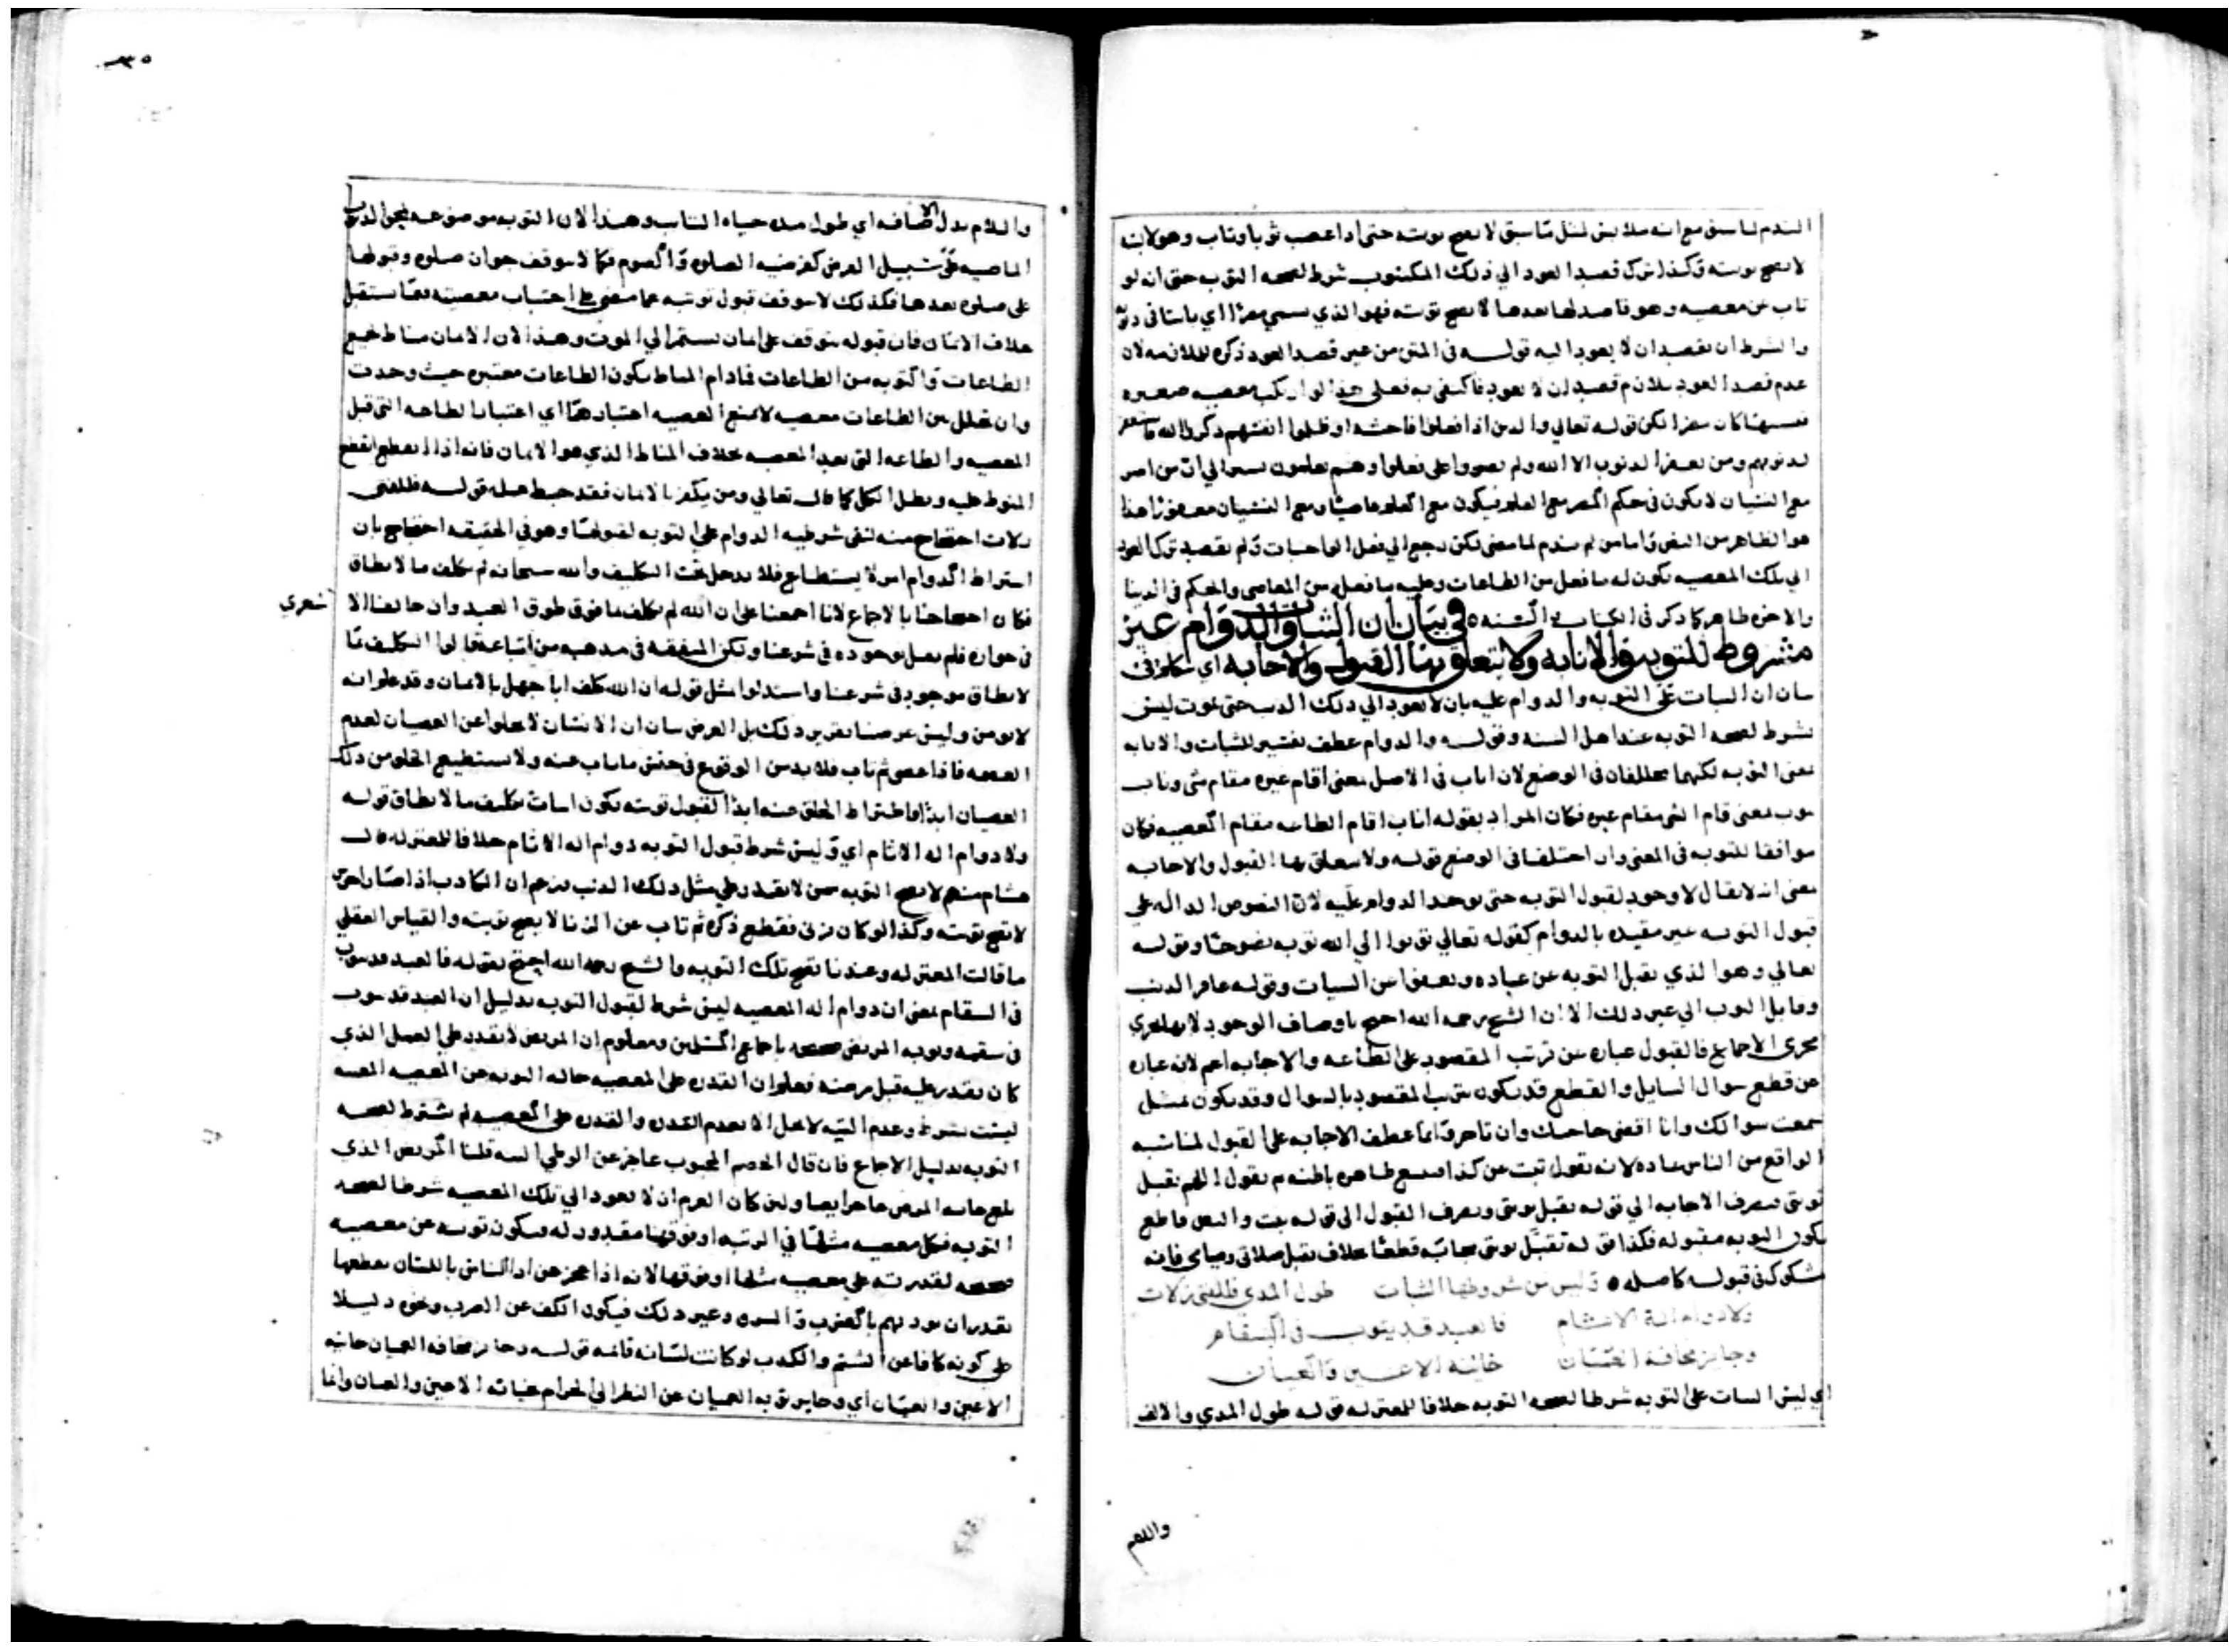 الندم لما سبق مع انه ملابس لمثل ما سبق لا تصح توبته حتى اذا غصب ثوبا وتاب وهو لابسه
لا تصح توبته وكذا ترك قصد العود الي ذلك المكتوب شرط لصحه التوبه حتى انه لو
تاب عن معصيه وهو قاصد لها بعدها لا تصح توبته فهو الذي يسمي
والشرط ان يقصد ان لا يعود اليه قولـه في المتن من غير قصد العود ذكره للملازمه لان
عدم قصد العود يلازم قصد ان لا يعود فاكتفي به فعلي هذا لو ارتكب معصيه صغيره
لكن قوله تعالي والذين اذا فعلوا فاحشه او ظلموا انفسهم ذكروا الله فاستغفروا
لذنوبهم ومن يغفر الذنوب الا الله ولم يصروا على ما فعلوا وهم يعلمون يشير الي ان من اصر
مع النسيان لا يكون في حكم المصر مع العلم فيكون مع العلم عاصيا ومع النسيان معفوا هذا
هو الظاهر من النص واما من لم يندم لما مضي لكن رجع الي فعل الواجبات ولم يقصد ترك العود
الي تلك المعصيه يكون له ما فعل من الطاعات وعليه ما فعل من المعاصي والحكم في الدنيا
والاخره ظاهر كما ذكر في الكتاب والسنه ه في بيان ان الثبات والدوام غير
مشروط للتوبه والانابه ولا يتعلق بها القبول والاجابه اي نتكلم في
بيان ان الثبات على التوبه والدوام عليه بان لا يعود الي ذلك الذنب حتى يموت ليس
بشرط لصحه التوبه عند اهل السنه وقولـه والدوام عطف تفسير للثبات والانابه
بمعنى التوبه لكنهما مختلفان في الوضع لان اناب في الاصل بمعنى اقام غيره مقام شي وناب
ينوب بمعنى قام الشي مقام غيره فكان المراد بقوله اناب اقام الطاعه مقام المعصيه فكان
موافقا للتوبه في المعنى وان اختلفا في الوضع قولـه ولا يتعلق بها القبول والاجابه
بمعنى انه لا يقال لا وجود لقبول التوبه حتى يوجد الدوام عليه لان النصوص الداله علي
قبول التوبـه غير مقيده بالدوام كقوله تعالي توبوا الي الله توبه نصوحا وقولـه
تعالي وهو الذي يقبل التوبه عن عباده ويعفوا عن السيات وقولـه غافر الذنب
وقابل التوب الي غير ذلك الا ان الشيخ رحمه الله احتج باوصاف الوجود لانها تجري
مجرى الاجماع فالقبول عباره عن ترتب المقصود على الطاعه والاجابه اعم لانه عباره
عن قطع سوال السايل والقطع قد يكون بترتب المقصود بالسوال وقد يكون بمثل
سمعت سوالك وانا اقضي حاجتك وان تاخر وانما عطف الاجابه على القبول لمناسبه
الواقع من الناس عاده لانه يقول تبت عن كذا مع ظاهره باطنه ثم يقول اللهم تقبل
توبتي فيصرف الاجابه الي قوله تقبل توبتي ويصرف القبول الي قوله تبت والنص قاطع
بكون التوبه مقبوله فكذا قوله تقبل توبتي مجابه قطعا بخلاف تقبل صلاتي وصيامي فانه
مشكوك في قبولـه كاصله ه وليس من شروطها الثبات طول المدي فللفتى زلات
ولا دوام الة الاثام فالعبد قد يتوب في السقام
وجايز مخافة العميان خائنة الاعين والعيان
اي ليس الثبات على التوبه شرطا لصحه التوبه خلافا للمعتزله قولـه طول المدي والالف
واللام
٣٥
واللام بدل الاضافه اي طول مده حياه التايب وهذا لان التوبه موضوعه لمحو الذنوب
الماضيه على سبيل الفرض كفرضيه الصلوه والصوم فكما لا يتوقف جواز صلوه وقبولها
على صلوه بعدها فكذلك لا يتوقف قبول توبته عما مضى على اجتناب معصيته فيما يستقبل
بخلاف الايمان فان قبوله يتوقف على ايمان يستمر الي الموت وهذا لان الايمان مناط جميع
الطاعات والتوبه من الطاعات فما دام المناط يكون الطاعات معتبره حيث وجدت
وان تخلل بين الطاعات معصيه لا يمنع المعصيه اعتبارها اي اعتبار الطاعه التي قبل
المعصيه والطاعه التي بعد المعصيه بخلاف المناط الذي هو الايمان فانه اذا انقطع انقطع
المنوط عليه وبطل الكل كما قال تعالي ومن يكفر بالايمان فقد حبط عمله قولـه فللفتى
زلات احتجاج منه لنفي شرطيه الدوام علي التوبه لقبولها وهو في الحقيقه احتجاج بان
اشتراط الدوام امر لا يستطاع فلا يدخل تحت التكليف والله سبحانه لم يكلف ما لا يطاق
فكان احتجاجنا بالاجماع لانا اجمعنا على ان الله لم يكلف ما فوق طوق العبد وان خالفنا الا
شعري
في جوازه فلم يقل بوجوده في شرعنا ولكن المتفقه في مذهبه من اتباعه قالوا التكليف بما
لا يطاق موجود في شرعنا واستدلوا بمثل قوله ان الله كلف ابا جهل بالايمان وقد علم انه
لا يومن وليس غرضنا تقرير ذلك بل الغرض بيان ان الانسان لا يخلوا عن العصيان لعدم
العصمه فاذا عصى ثم تاب فلا بد من الوقوع في جنس ما تاب عنه ولا يستطيع الخلو من ذلك
العصيان ابدا فاشتراط الخلو عنه ابدا لقبول توبته يكون اثبات تكليف ما لا يطاق قولـه
ولا دوام اله الاثام اي وليس شرط قبول التوبه دوام اله الاثام خلافا للمعتزله قال
هشام منهم لا تصح التوبه ممن لا يقدر علي مثل ذلك الذنب بزعم ان الكاذب اذا صار اخرس
لا تصح توبته وكذا لو كان زنى فقطع ذكره ثم تاب عن الزنا لا تصح توبته والقياس العقلي
ما قالت المعتزله وعندنا تصح تلك التوبه والشيخ رحمه الله احتج بقوله فالعبد قد يتوب
في السقام بمعنى ان دوام اله المعصيه ليس شرط لقبول التوبه بدليل ان العبد قد يتوب
في سقمه وتوبه المريض صحيحه باجماع المسلمين ومعلوم ان المريض لا يقدر علي العمل الذي
كان يقدر عليه قبل مرضه فعلم ان القدره على المعصيه حاله التوبه عن المعصيه المعينه
ليست بشرط وعدم الاله لا يخل الا بعدم القدره والقدره على المعصيه لم تشترط لصحه
التوبه بدليل الاجماع فان قال الخصم المجبوب عاجز عن الوطي البته قلنا المريض الذي
عاجز ايضا ولين كان العزم ان لا يعود الي تلك المعصيه شرطا لصحه
التوبه فكل معصيه مثلها في الرتبه او فوقها مقدور له فيكون توبته عن معصيه
صحيحه لقدرته علي معصيه مثلها او فوقها لانه اذا عجز عن اذا الناس باللسان بقطعها
يقدر ان يوذيهم بالضرب والسرقه وغير ذلك فيكون الكف عن الضرب ونحوه دليلا
على كونه كافا عن الشتم والكذب لو كانت لسانه قائمه قولـه وجايز مخافه العميان خائنه
الاعين والعيان اي وجايز توبه العميان عن النظر الي الحرام خيانه الاعين والعيان وانما